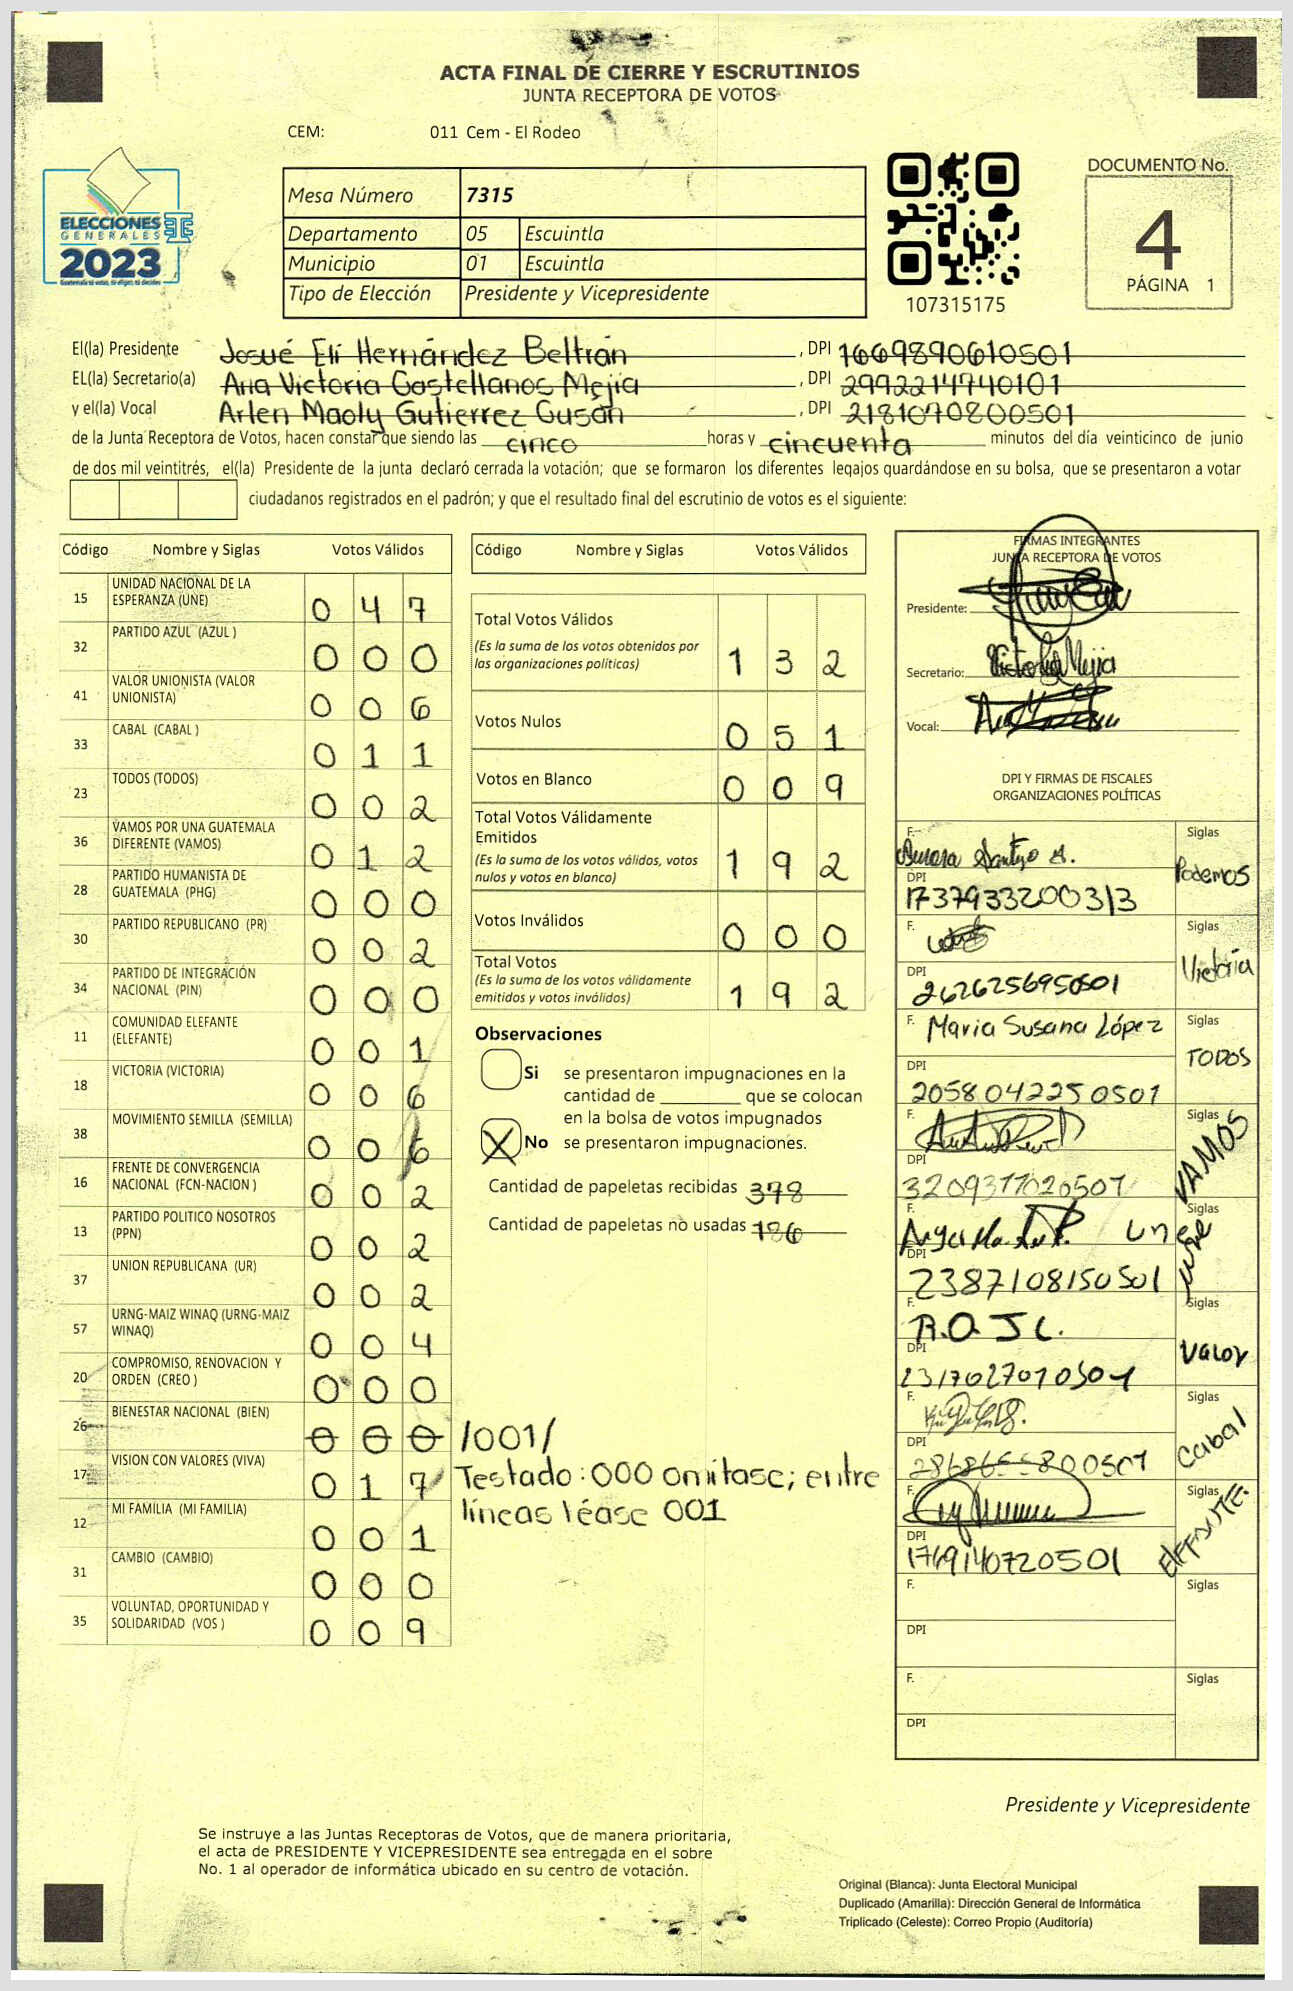 ACTA FINAL DE CIERRE Y ESCRUTINIOS
JUNTA RECEPTORA DE VOTOS
CEM: 011 Cem - El Rodeo
ELECCIONES
GENERALES
2023
Mesa Número 7315
Departamento 05 Escuintla
Municipio 01 Escuintla
Tipo de Elección Presidente y Vicepresidente
107315175
DOCUMENTO No.
4
PÁGINA 1
El(la) Presidente Josué Elí Hernández Beltrán, DPI 1669890610501
EL(la) Secretario(a) Ana Victoria Castellanos Mejía, DPI 2992214740101
y el(la) Vocal Arlen Maoly Gutierrez Gusán, DPI 2181070800501
de la Junta Receptora de Votos, hacen constar que siendo las cinco horas y cincuenta minutos del día veinticinco de junio
de dos mil veintitrés, el(la) Presidente de la junta declaró cerrada la votación; que se formaron los diferentes legajos guardándose en su bolsa, que se presentaron a votar
ciudadanos registrados en el padrón; y que el resultado final del escrutinio de votos es el siguiente:
Código Nombre y Siglas Votos Válidos
15 UNIDAD NACIONAL DE LA ESPERANZA (UNE) 0 4 7
32 PARTIDO AZUL (AZUL ) 0 0 0
41 VALOR UNIONISTA (VALOR UNIONISTA) 0 0 6
33 CABAL (CABAL ) 0 1 1
23 TODOS (TODOS) 0 0 2
36 VAMOS POR UNA GUATEMALA DIFERENTE (VAMOS) 0 1 2
28 PARTIDO HUMANISTA DE GUATEMALA (PHG) 0 0 0
30 PARTIDO REPUBLICANO (PR) 0 0 2
34 PARTIDO DE INTEGRACIÓN NACIONAL (PIN) 0 0 0
11 COMUNIDAD ELEFANTE (ELEFANTE) 0 0 1
18 VICTORIA (VICTORIA) 0 0 6
38 MOVIMIENTO SEMILLA (SEMILLA) 0 0 6
16 FRENTE DE CONVERGENCIA NACIONAL (FCN-NACION ) 0 0 2
13 PARTIDO POLITICO NOSOTROS (PPN) 0 0 2
37 UNION REPUBLICANA (UR) 0 0 2
57 URNG-MAIZ WINAQ (URNG-MAIZ WINAQ) 0 0 4
20 COMPROMISO, RENOVACION Y ORDEN (CREO ) 0 0 0
26 BIENESTAR NACIONAL (BIEN) 0 0 0 /001/
17 VISION CON VALORES (VIVA) 0 1 7
12 MI FAMILIA (MI FAMILIA) 0 0 1
31 CAMBIO (CAMBIO) 0 0 0
35 VOLUNTAD, OPORTUNIDAD Y SOLIDARIDAD (VOS ) 0 0 9
Testado: 000 omitase; entre
líneas léase 001
Código Nombre y Siglas Votos Válidos
Total Votos Válidos 1 3 2
(Es la suma de los votos obtenidos por
las organizaciones políticas)
Votos Nulos 0 5 1
Votos en Blanco 0 0 9
Total Votos Válidamente
Emitidos 1 9 2
(Es la suma de los votos válidos, votos
nulos y votos en blanco)
Votos Inválidos 0 0 0
Total Votos 1 9 2
(Es la suma de los votos válidamente
emitidos y votos inválidos)
Observaciones
Si se presentaron impugnaciones en la
cantidad de ________ que se colocan
en la bolsa de votos impugnados
X No se presentaron impugnaciones.
Cantidad de papeletas recibidas 378
Cantidad de papeletas no usadas 186
FIRMAS INTEGRANTES
JUNTA RECEPTORA DE VOTOS
Presidente:
Secretario: Victoria Mejia
Vocal:
DPI Y FIRMAS DE FISCALES
ORGANIZACIONES POLÍTICAS
F. Siglas
DPI 1737933200313 Podemos
F. Siglas
DPI 2626256950501 Victoria
F. Maria Susana López Siglas
DPI 2058042250501 TODOS
F. Siglas
DPI 3209377020507 VAMOS
F. Une Siglas
DPI 2387108150501 une
F. R.O.J.C. Siglas
DPI 2317027070501 Valor
F. Siglas
DPI Cabal
F. Siglas
DPI 1769140720501 ElEFANTE.
F. Siglas
DPI
F. Siglas
DPI
Presidente y Vicepresidente
Se instruye a las Juntas Receptoras de Votos, que de manera prioritaria,
el acta de PRESIDENTE Y VICEPRESIDENTE sea entregada en el sobre
No. 1 al operador de informática ubicado en su centro de votación.
Original (Blanca): Junta Electoral Municipal
Duplicado (Amarilla): Dirección General de Informática
Triplicado (Celeste): Correo Propio (Auditoría)